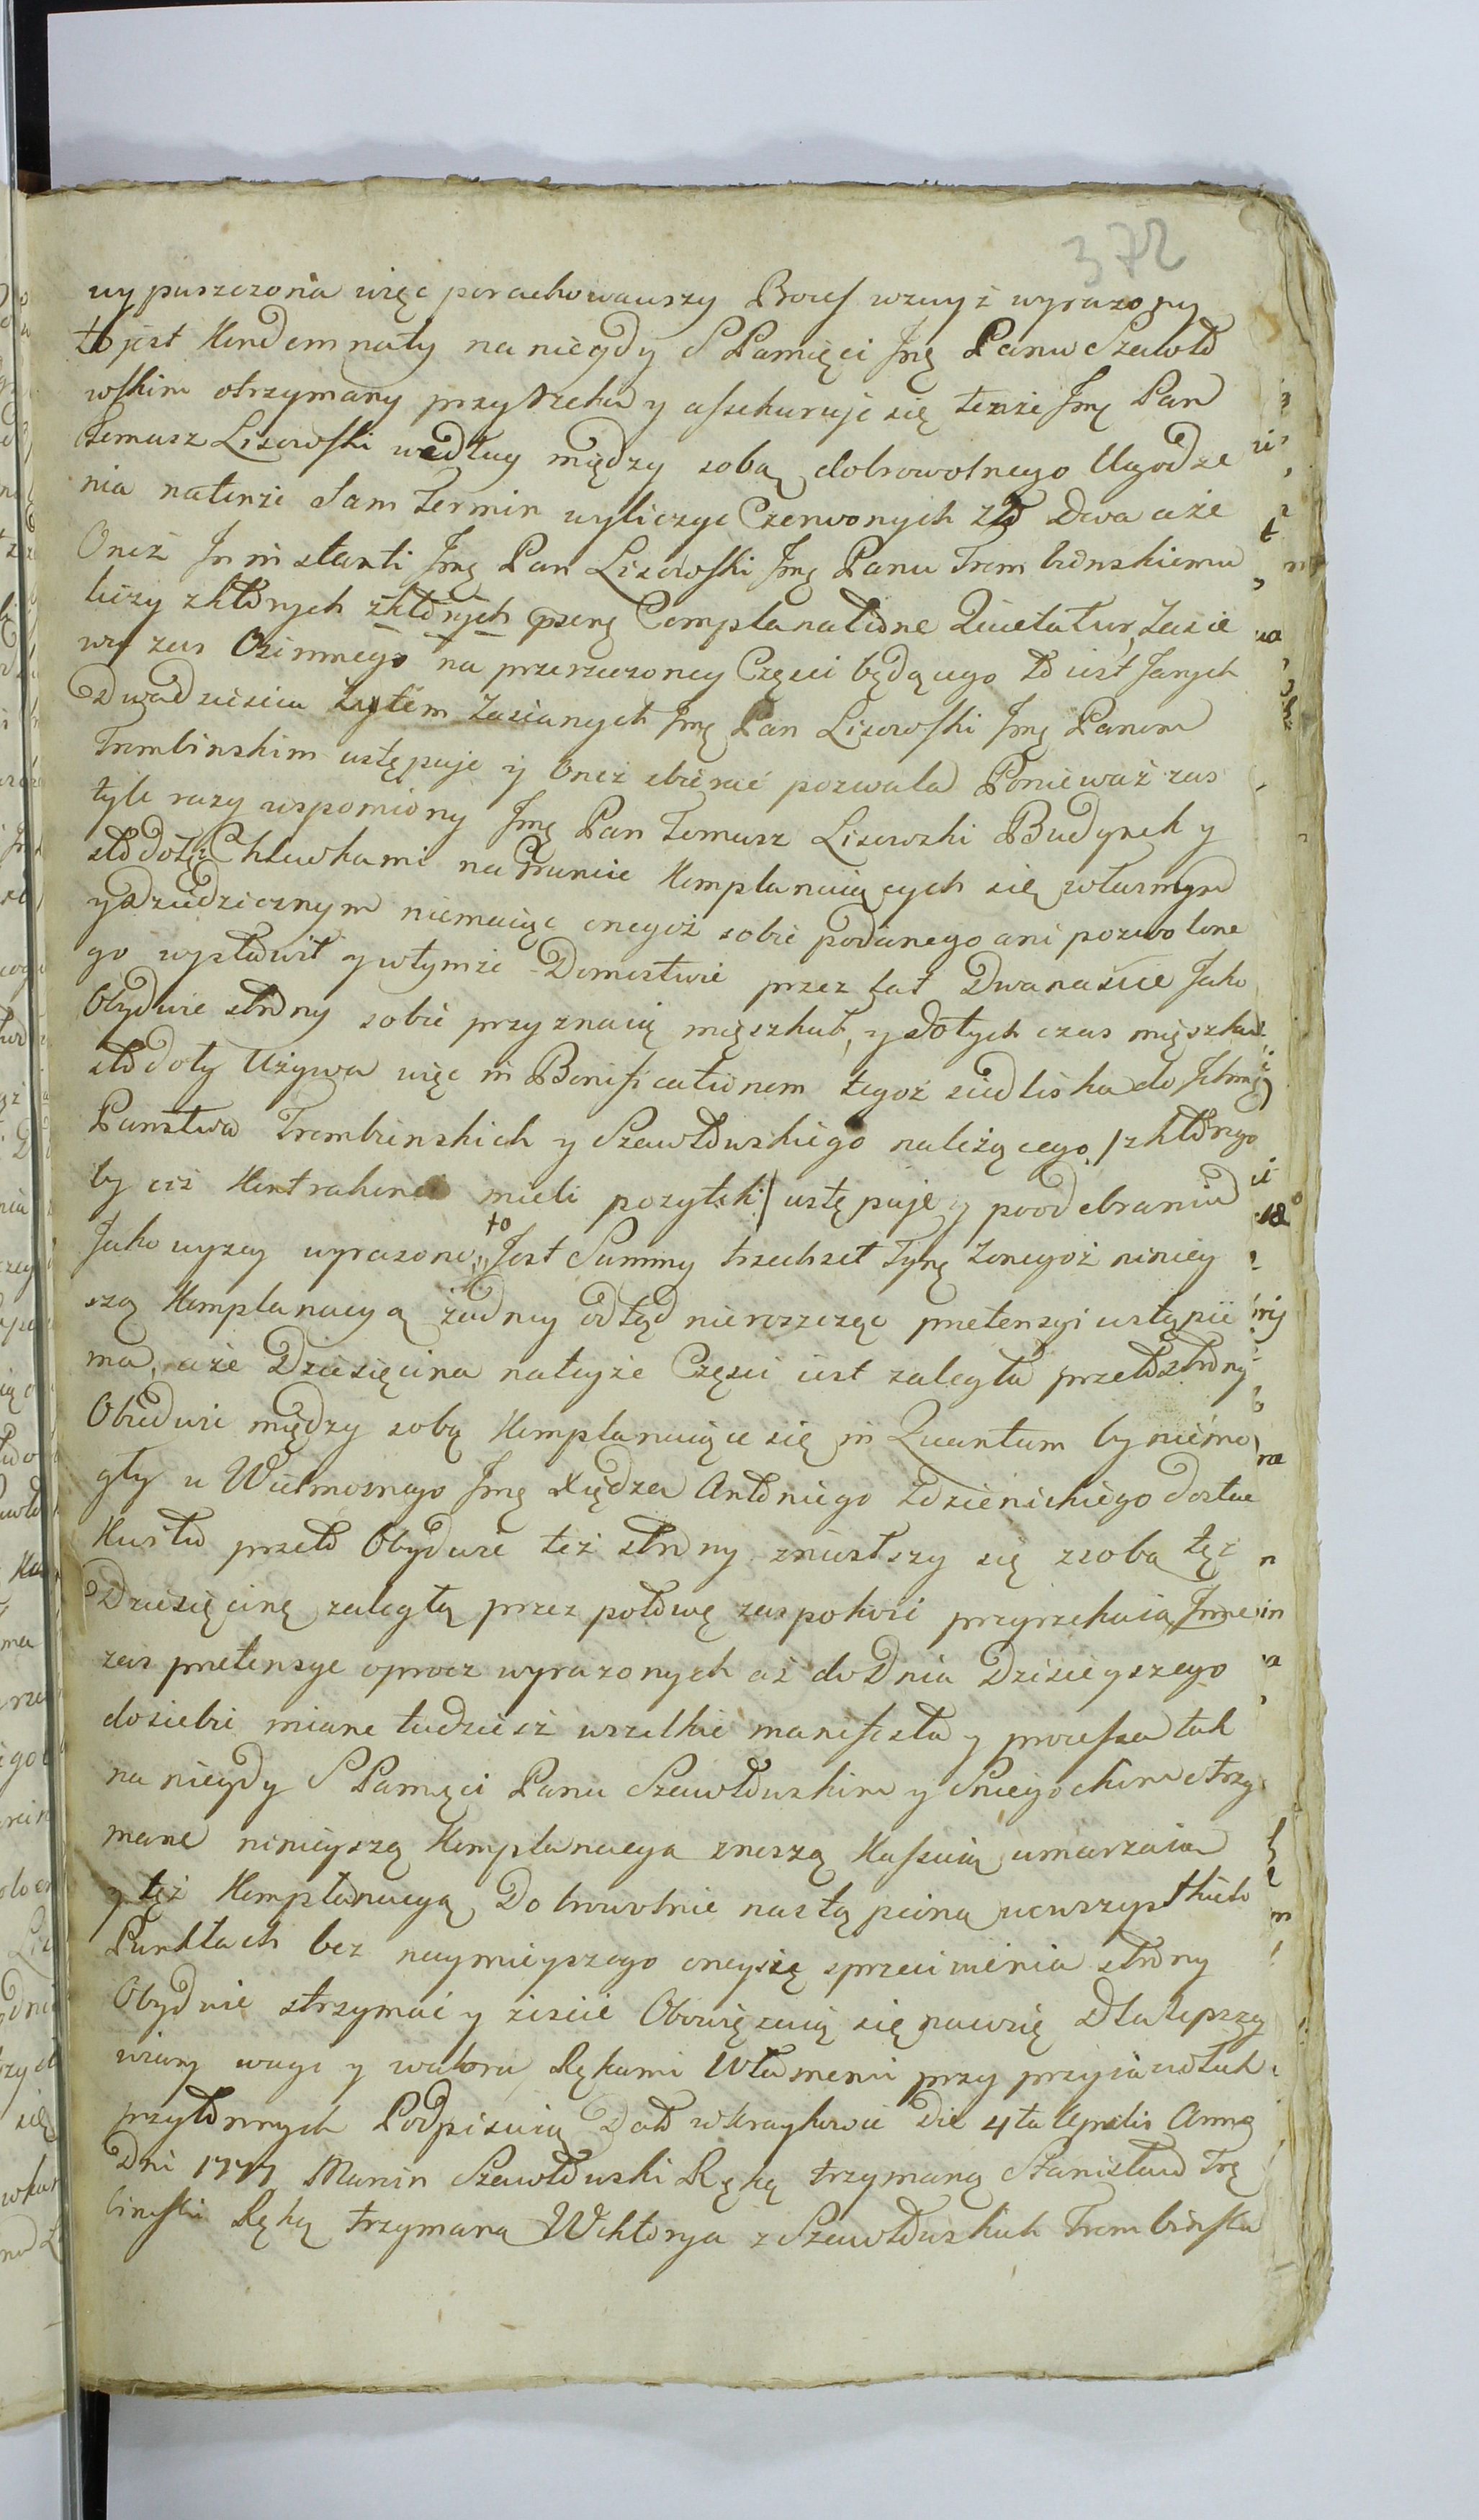 372
wypuszczona więc porachowawszy Process wzwyż wyrazony
to jest Kondemnaty na niegdy S Pamięci Jmę Panu Szawło
wskim otrzymany przyrzeka y assekuruje się tenże Jmę Pan
Tomasz Lisowski według między sobą dobrowolnego Ugodze
nia natenże sam Termin wyliczyc Czerwonych Zło Dwa aże
Oneż In instanti Jmę Pan Lisowski Jmę Panu Trembinskiemu
liczy zktorych zktorych psene Complanatione Quietatur, Zasie
wu zas Ozimnego na przerzeczoney Częsci będącego to iest Janych
Dwadziescia Zytem Zasianych Jmę Pan Lisowski Jmę Panom
Trembinskim ustępuje y Oneż zbierać pozwala Ponieważ zas
tyle razy wspomiony Jmę Pan Tomasz Lisowski Budynek y
stodołę z Chlewkami na Gruncie Komplanuiących się własnym
y Dziedzicznym niemaiąc onegoż sobie podanego ani pozwolone
go wystawił y wtymże Domostwie przez lat Dwanascie Jako
Obydwie strony sobie przyznaią mięszkał, y dotych czas mięszka
stodoły Używa więc in Bonificationem tegoż siedliska do Jchmę
Panstwa Trembinskich y Szawłowskiego należącego / zktorego
by ciż Kontrahenci mieli pozytek / ustępuje y poodebraniu
Jako wyzey wyrazone to Jest Summy trzechset Tynę zonegoż niniey
szą Komplanacyą żadney odtąd nieroszcząc pretensyi ustąpić
ma, aże Dziesięcina nateyże Częsci iest zaległa przeto strony
Obiedwie między sobą Komplanuiące się in Quantum by niemo
gły u Wielmoznego Jmę Xiędza Antoniego Zdzienickiego dostac
Kwitu przeto Obydwie też strony zniosłszy się zsobą tęż
Dziesięcinę zaległą przez połowę zaspokoić przyrzekaią Jnne
zas pretensye oprocz wyrazonych aż do Dnia Dzisieyszego
dosiebie miane tudziesz wszelkie manifesta y processa tak
na niegdy S Pamięci Panu Szawłowskim y Sniegockim otrzy
mane ninieyszą Komplanacyą znoszą Kassuią umarzaią
y tęż Komplanacyą Dobrowolnie nastąpioną wewszystkich
Punktach bez naymnieyszego oneysię sprzeciwienia strony
Obydwie strzymać y ziscić Obowięzuią się nawsię Dla lepszy
wiary wagi y waloru Rękami Własnemi przy przyiaciołach
przytomnych Podpisuią Dato w Kraykowie Die 4ta Aprilis Anno
Dni 1777 Marcin Szawłowski Ręką trzymaną Stanisław Trę
binski Ręką trzymaną Wiktorya z Szawłowskich Trembinska